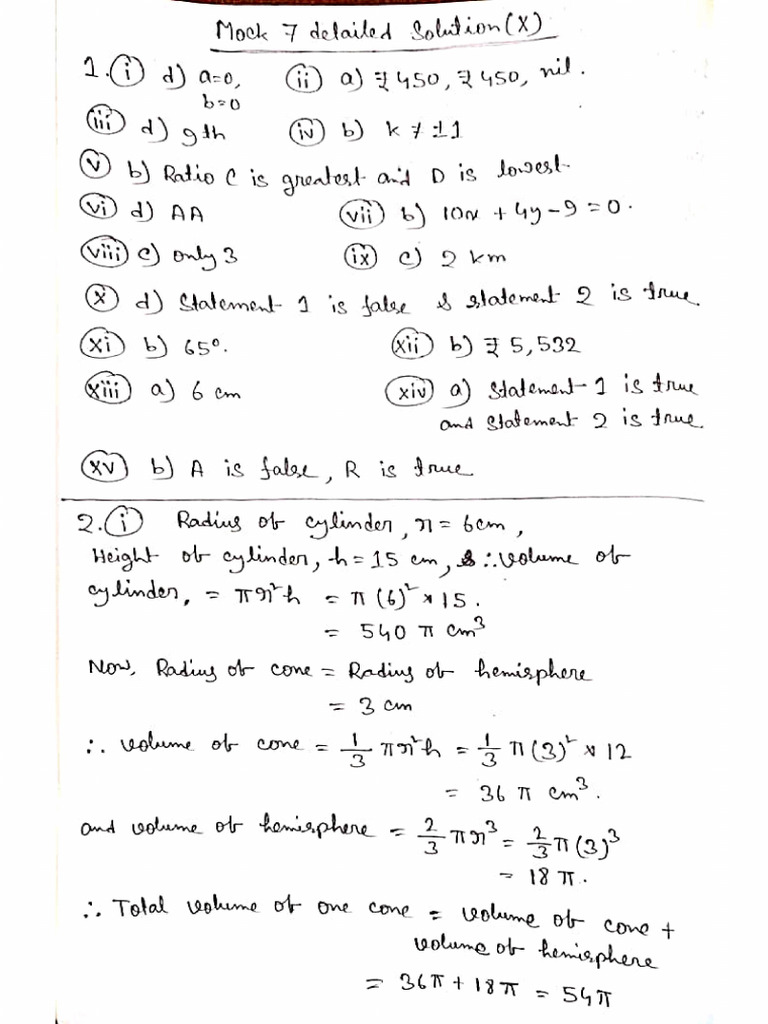 Mock 7 detailed Solution (X)
1. (i) d) a=0, b=0 (ii) a) ₹450, ₹450, nil.
(iii) d) 9th (iv) b) k ≠ ±1
(v) b) Ratio C is greatest and D is lowest.
(vi) d) AA (vii) b) 10x + 4y - 9 = 0.
(viii) c) only 3 (ix) c) 2 km
(x) d) Statement 1 is false & statement 2 is true.
(xi) b) 65°. (xii) b) ₹5,532
(xiii) a) 6 cm (xiv) a) Statement-1 is true
and Statement 2 is true.
(xv) b) A is false, R is true
2. (i) Radius of cylinder, r = 6cm,
Height of cylinder, h = 15 cm, ∴ volume of
cylinder, = πr²h = π(6)² × 15.
= 540 π cm³
Now, Radius of cone = Radius of hemisphere
= 3 cm
∴ volume of cone = 1/3 πr²h = 1/3 π(3)² × 12
= 36 π cm³.
and volume of hemisphere = 2/3 πr³ = 2/3 π(3)³
= 18 π.
∴ Total volume of one cone = volume of cone +
volume of hemisphere
= 36π + 18π = 54π